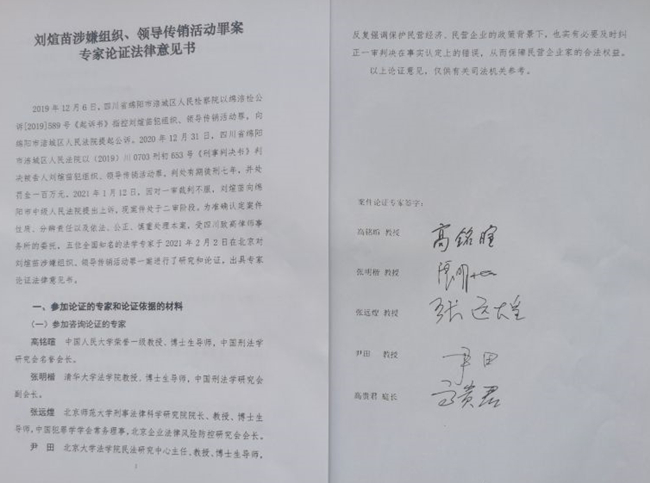 刘煊苗涉嫌组织、领导传销活动罪案
专家论证法律意见书
2019年12月6日，四川省绵阳市涪城区人民检察院以绵涪检公
诉[2019]589号《起诉书》指控刘煊苗犯组织、领导传销活动罪，向
绵阳市涪城区人民法院提起公诉。2020年12月31日，四川省绵阳
市涪城区人民法院以（2019）川0703刑初653号《刑事判决书》判
决被告人刘煊苗犯组织、领导传销活动罪，判处有期徒刑七年，并处
罚金一百万元。2021年1月12日，因对一审裁判不服，刘煊苗向绵
阳市中级人民法院提出上诉，现案件处于二审阶段。为准确认定案件
性质、分辨责任以及依法、公正、慎重处理本案，受四川致高律师事
务所的委托，五位全国知名的法学专家于2021年2月2日在北京对
刘煊苗涉嫌组织、领导传销活动罪一案进行了研究和论证，出具专家
论证法律意见书。
一、参加论证的专家和论证依据的材料
（一）参加咨询论证的专家
高铭暄 中国人民大学荣誉一级教授、博士生导师，中国刑法学
研究会名誉会长。
张明楷 清华大学法学院教授、博士生导师，中国刑法学研究会
副会长。
张远煌 北京师范大学刑事法律科学研究院院长、教授、博士生
导师，中国犯罪学学会常务理事，北京企业法律风险防控研究会会长。
尹 田 北京大学法学院民法研究中心主任、教授、博士生导师，
1
反复强调保护民营经济、民营企业的政策背景下，也实有必要及时纠
正一审判决在事实认定上的错误，从而保障民营企业家的合法权益。
以上论证意见，仅供有关司法机关参考。
案件论证专家签字：
高铭暄 教授 高铭暄
张明楷 教授
张远煌 教授 张远煌
尹田 教授 尹田
高贵君 庭长 高贵君